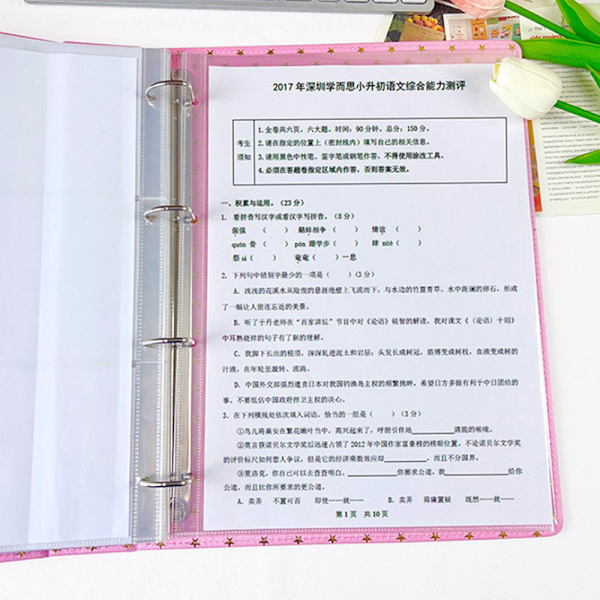 2017 年深圳学而思小升初语文综合能力测评
考生须知
1.全卷共六页，六大题。时间：90 分钟。总分：150 分。
2.请在指定的位置上（密封线内）填写自己的相关信息。
3.请用黑色中性笔、签字笔或钢笔作答，不得使用涂改工具。
4.必须在答题卷指定区域内作答，否则答案无效。
一、积累与运用。（23 分）
1. 看拼音写汉字或看汉字写拼音。（8 分）
倔强（ ） 鹬蚌相争（ ） 情谊（ ）
quón 骨（ ） pón 跚学步（ ） 肆 nüè（ ）
祭 sì（ ） 奄奄（ ）一息
2. 下列句中错别字最少的一项是（ ）（3 分）
A. 浅浅的花溪水从险俊的悬涯绝壁上飞流而下，与水边的竹蔓青草、水中斑斓的卵石，形成
了一幅让人留连忘返的美景。
B. 听了于丹老师在“百家讲坛”节目中对《论语》锐智的解读，我对课文《〈论语〉十则》
中耳熟能样的句子有了新的理解。
C. 我脚下长出的根须，深深轧进泥土和岩层；头发长成树冠，胳博变成树枝，血液变成树的
汁液，在年轮里旋转、流淌。
D. 中国外交部强烈遣责日本对我国钓渔岛主权的频繁挑衅，希望日方多做有利于中日团结的
事，不要低估中国政府捍卫主权的决心。
3. 在下列横线处依次填入词语，恰当的一组是（ ）（3 分）
①鸟儿将巢安在繁花嫩叶当中，高兴起来了，呼朋引伴地________清脆的喉咙。
②莫言获诺贝尔文学奖后迅速占领了 2012 年中国作家富豪榜的榜眼位置，不论诺贝尔文学奖
的评价标尺如何惹人争议，但是它的经济乘数效应却________，而且不分国界。
③夏洛克，你自己可以去查查明白。________你要求公道，我________给你
公道，而且比你所要求的更公道。
A. 卖弄 不置可否 即使……就…… B. 卖弄 毋庸置疑 既然……就……
第 1 页 共 10 页